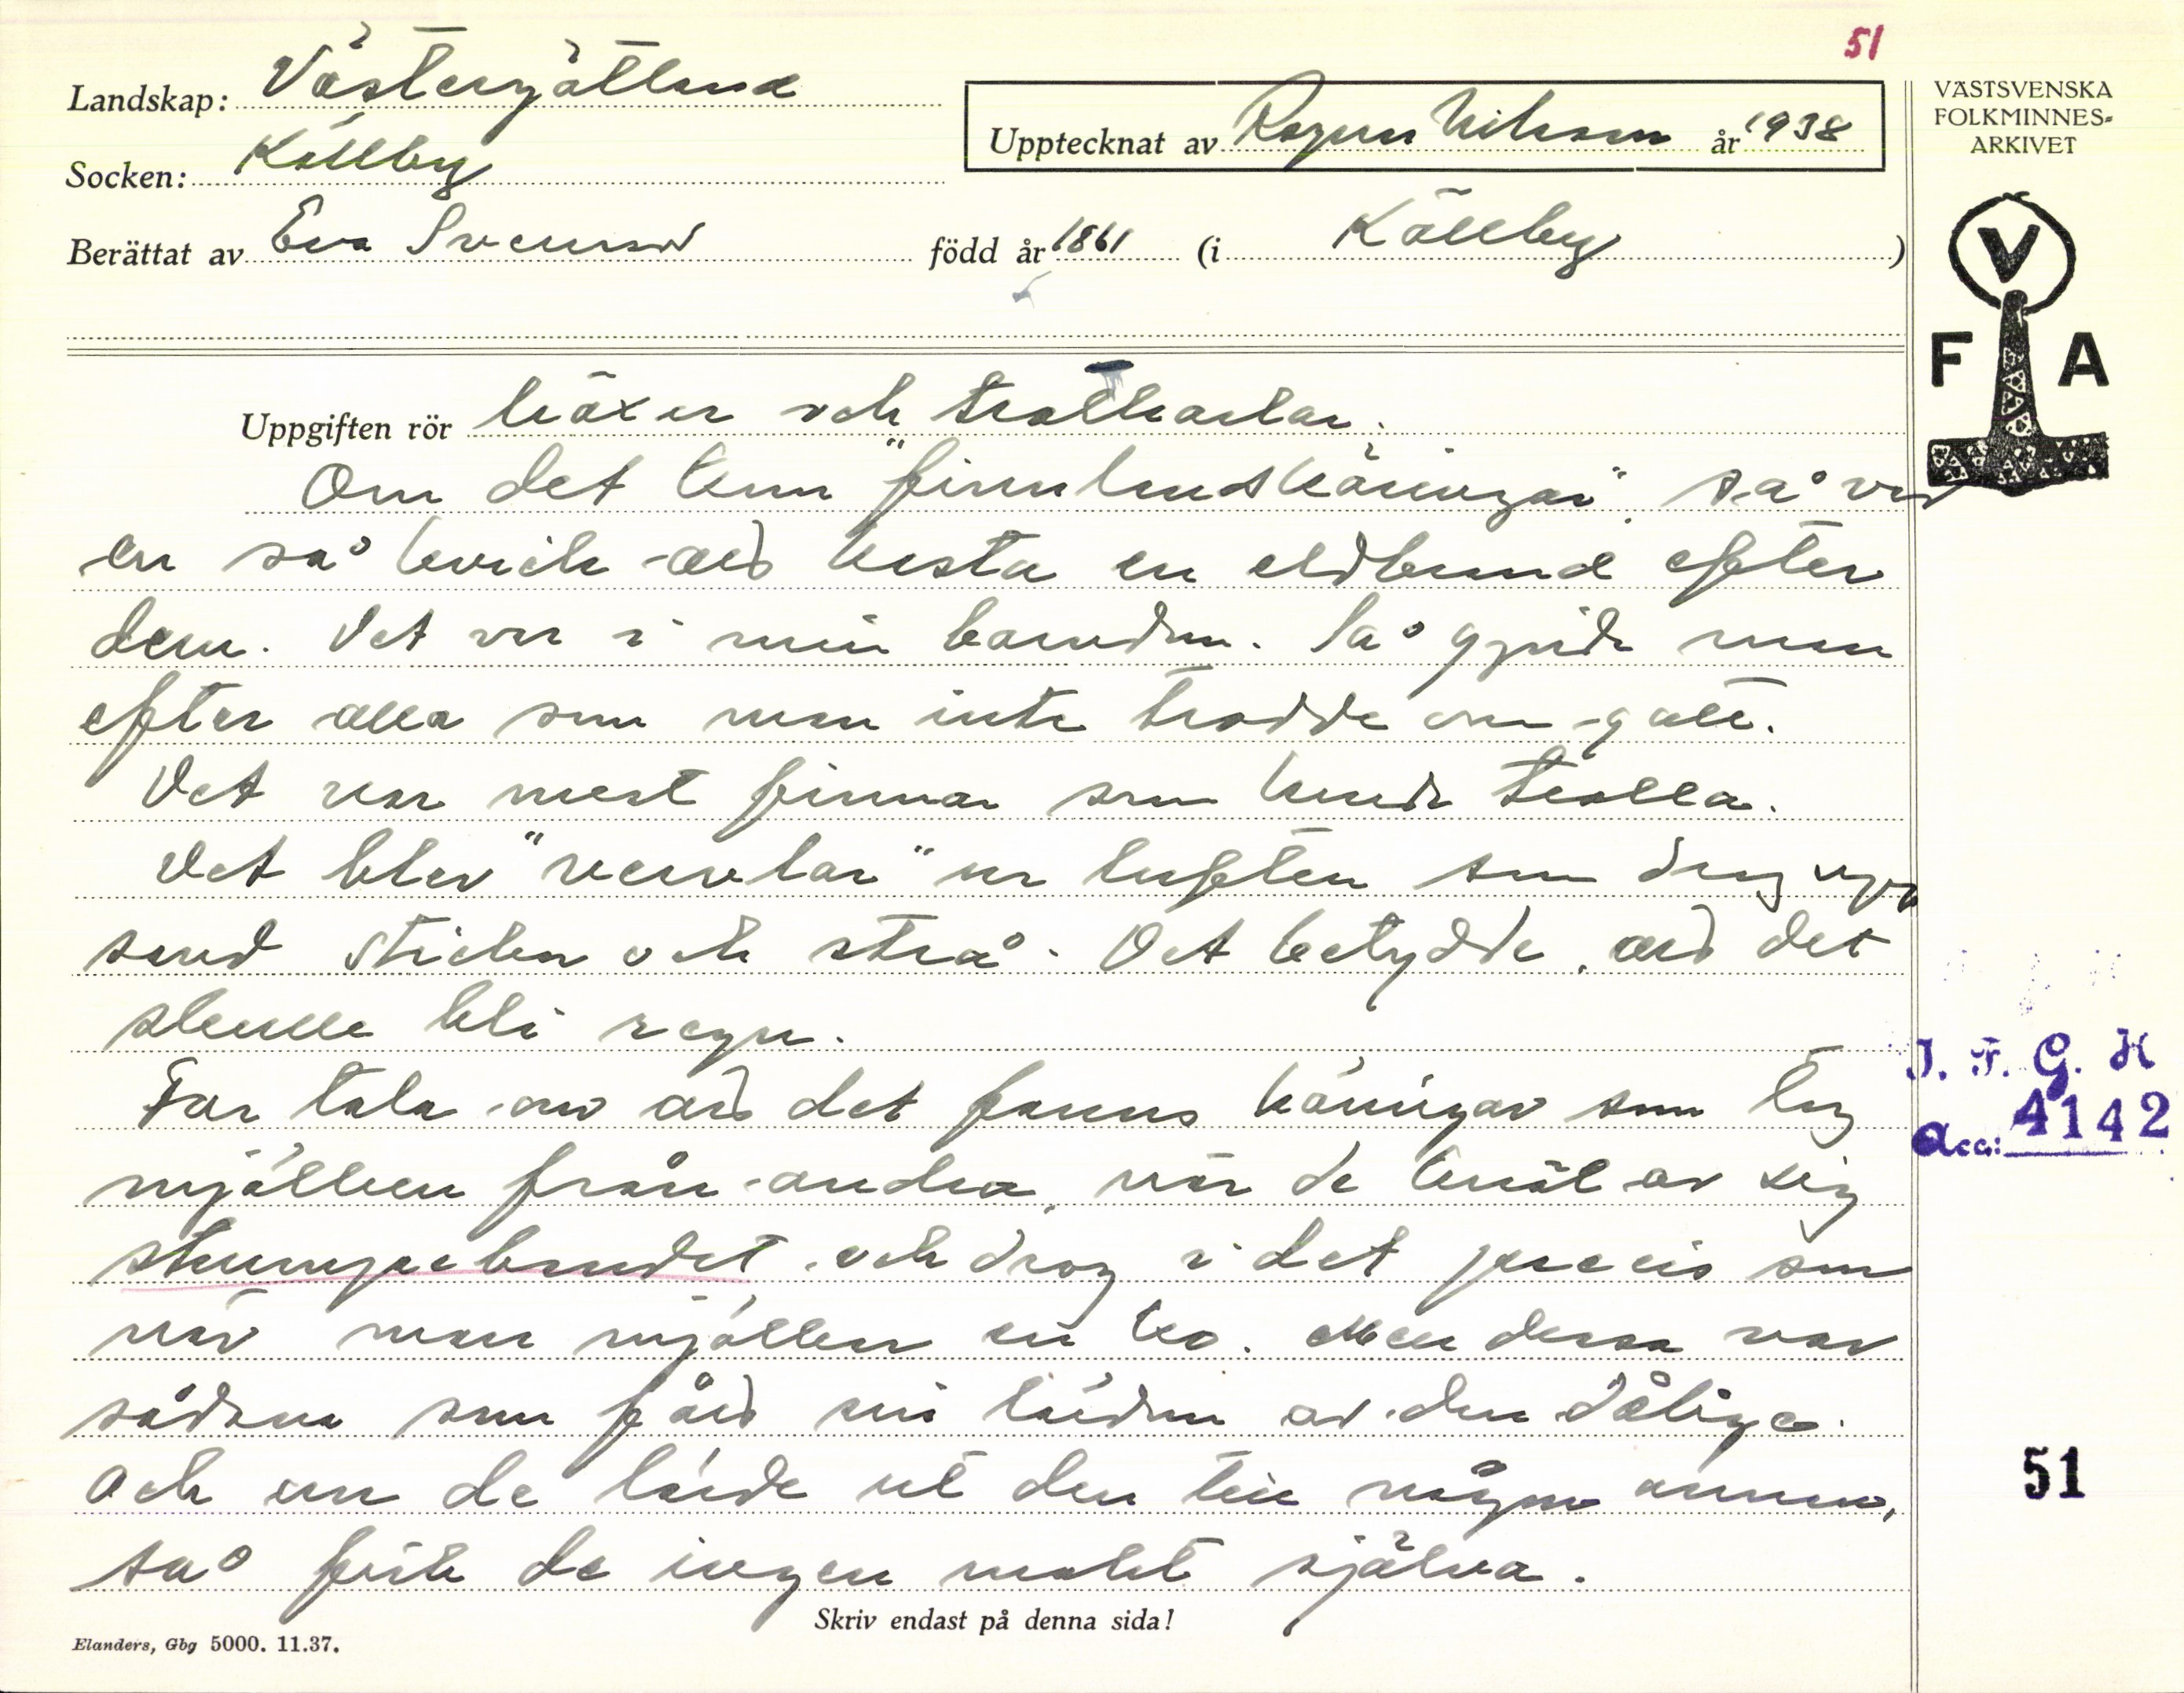 51
Landskap: Västergötland
Socken: Källby
Berättat av Eva Svensson
Upptecknat av Ragnar Nilsson år 1938
född år 1861 (i Källby)
VÄSTSVENSKA
FOLKMINNES-
ARKIVET
V
F A
Uppgiften rör häxor och trollkarlar.
Om det kom "finnlandskäringar", så var
en så kvick att kasta en eldbrand efter
dem. Det var i min barndom. Så gjorde man
efter alla som man inte trodde om gott.
Det var mest finnar som kunde trolla.
Det blev "virvlar" ur luften som drog upp
sand stickor och strå. Det betydde, att det
skulle bli regn.
Far tala om att det fanns käringar som tog
mjölken från andra, när de knöt av sig
strumpebandet och drog i det precis som
när man mjölkar en ko. Men dessa var
sådana som fått sin lärdom av den dålige.
Och om de lärde ut den till någon annan,
så fick de ingen makt själva.
I. F. G. H
Acc: 4142
51
Skriv endast på denna sida!
Elanders, Gbg 5000. 11.37.